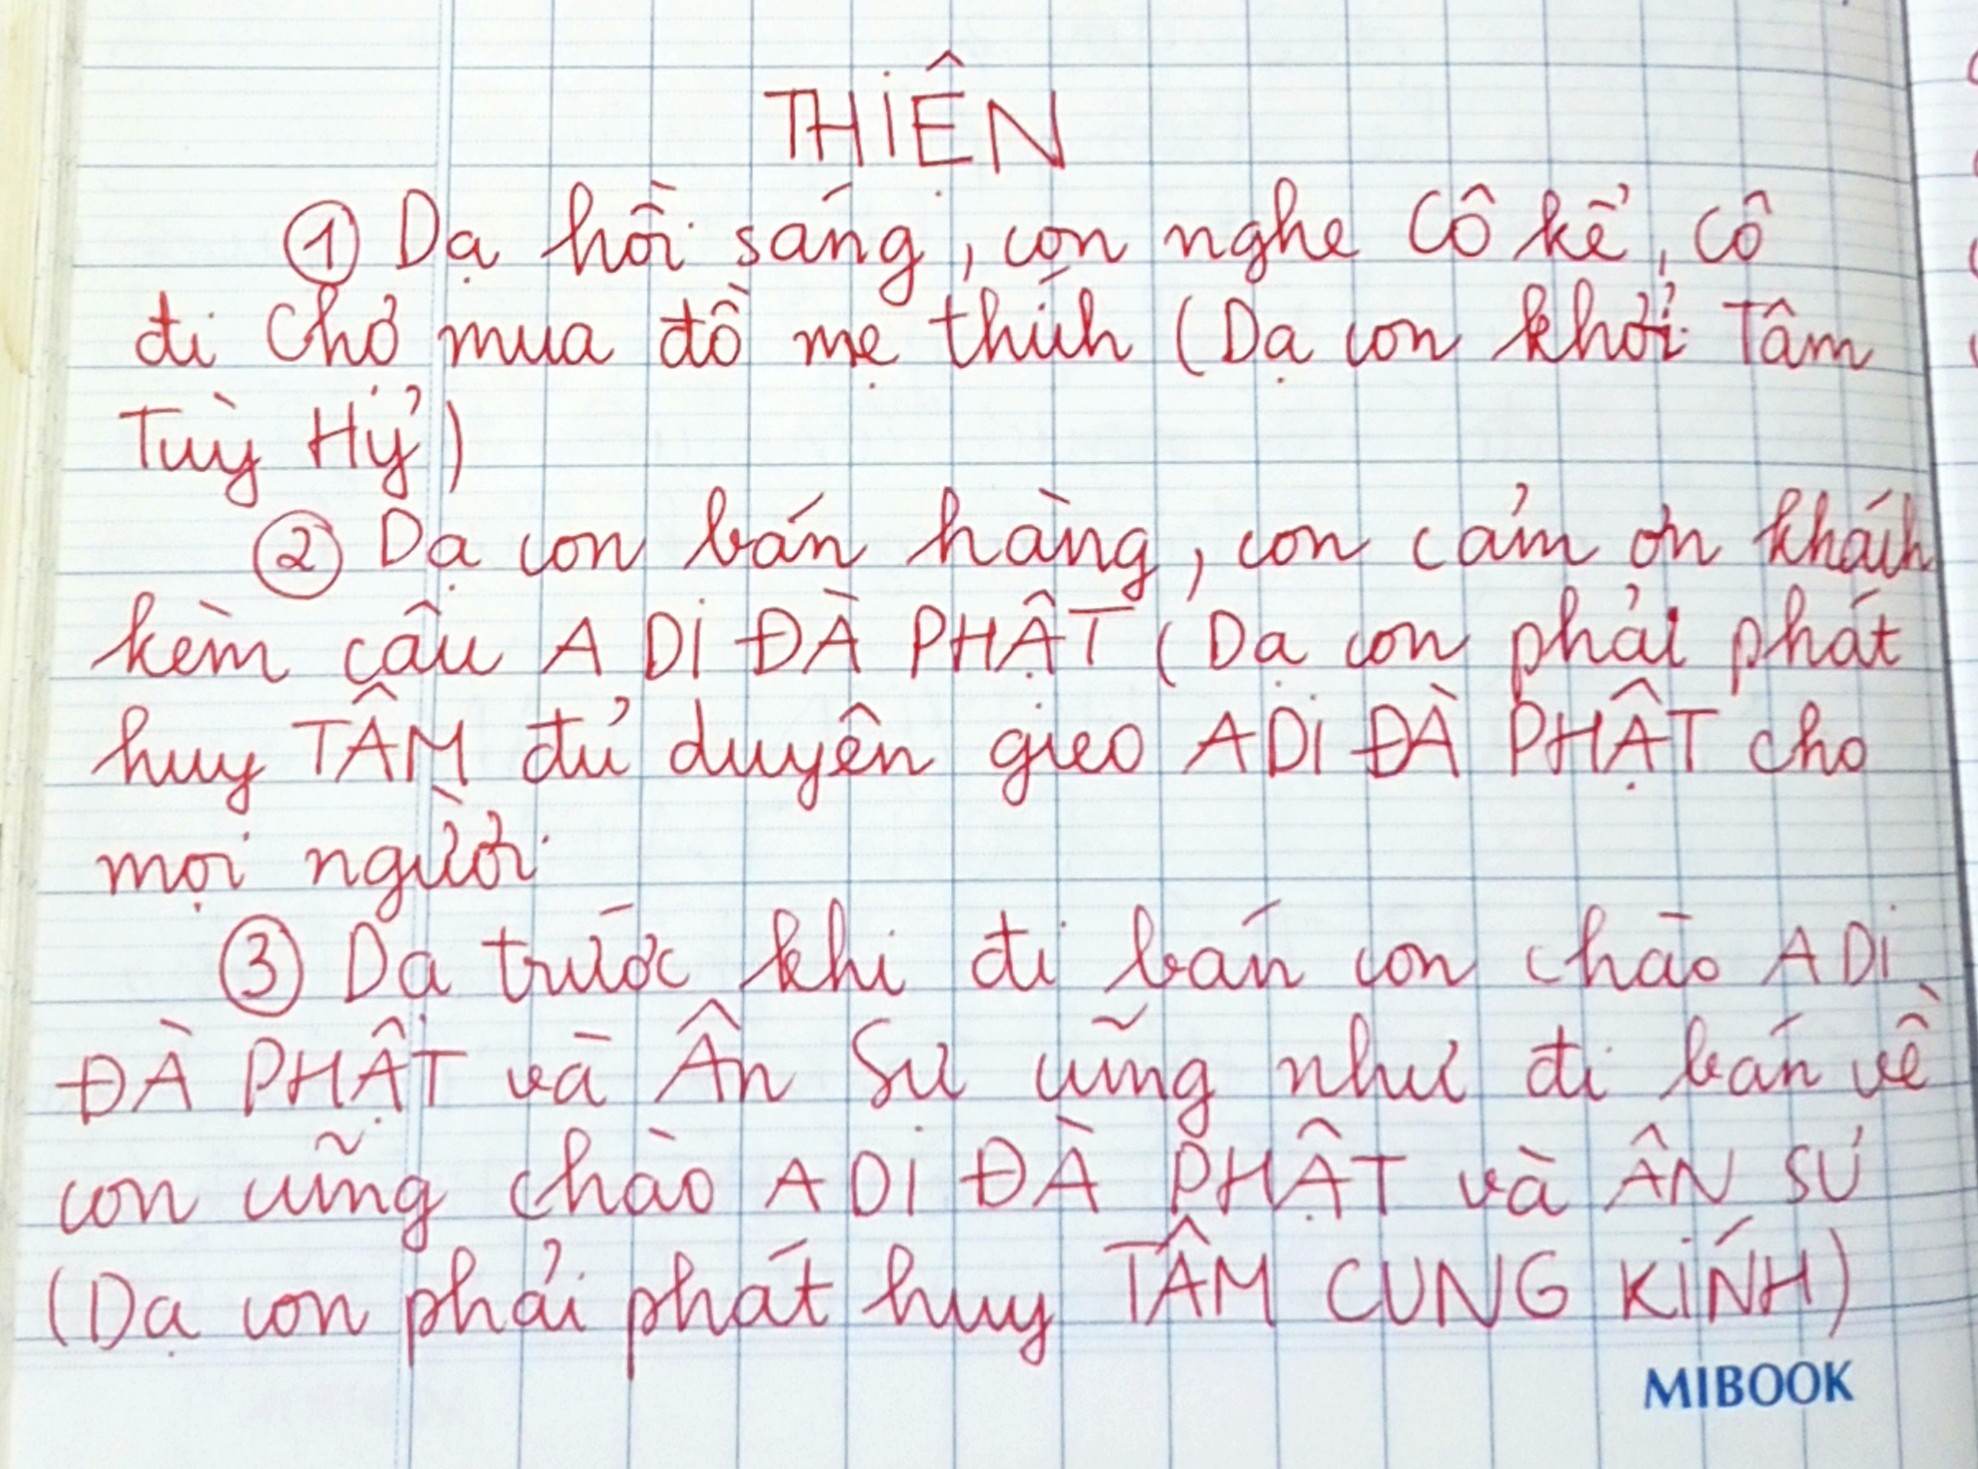 THIÊN
① Dạ hồi sáng, con nghe Cô kể, cô
đi Chợ mua đồ mẹ thích (Dạ con khởi Tâm
Tuỳ Hỷ)
② Dạ con bán hàng, con cảm ơn khách
kèm câu A DI ĐÀ PHẬT (Dạ con phải phát
huy TÂM đủ duyên gieo A DI ĐÀ PHẬT cho
mọi người
③ Dạ trước khi đi bán con chào A DI
ĐÀ PHẬT và Ân Sư cũng như đi bán về
con cũng chào A DI ĐÀ PHẬT và ÂN SƯ
(Dạ con phải phát huy TÂM CUNG KÍNH)
MIBOOK